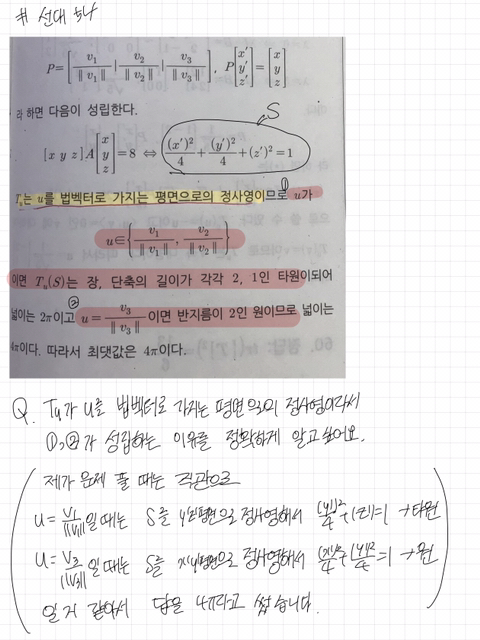 # 선대 5나
P=[v₁/‖v₁‖ | v₂/‖v₂‖ | v₃/‖v₃‖], P[x' y' z']=[x y z]
라 하면 다음이 성립한다.
S
[x y z]A[x y z]=8 ⇔ (x')²/4+(y')²/4+(z')²=1
Tᵤ는 u를 법벡터로 가지는 평면으로의 정사영이므로 ① u가
u∈{v₁/‖v₁‖, v₂/‖v₂‖}
이면 Tᵤ(S)는 장, 단축의 길이가 각각 2, 1인 타원이되어
넓이는 2π이고 ② u=v₃/‖v₃‖이면 반지름이 2인 원이므로 넓이는
4π이다. 따라서 최댓값은 4π이다.
Q. Tu가 u를 법벡터로 가지는 평면으로의 정사영이라서
①,②가 성립하는 이유를 정확하게 알고싶어요.
제가 문제 풀 때는 직관으로
u=V₁/‖V₁‖일 때는 S를 y'z'평면으로 정사영해서 (y')²/4+(z')²=1 → 타원
u=V₃/‖V₃‖일 때는 S를 x'y'평면으로 정사영해서 (x')²/4+(y')²/4=1 → 원
일 거 같아서 답을 4π라고 썼습니다.